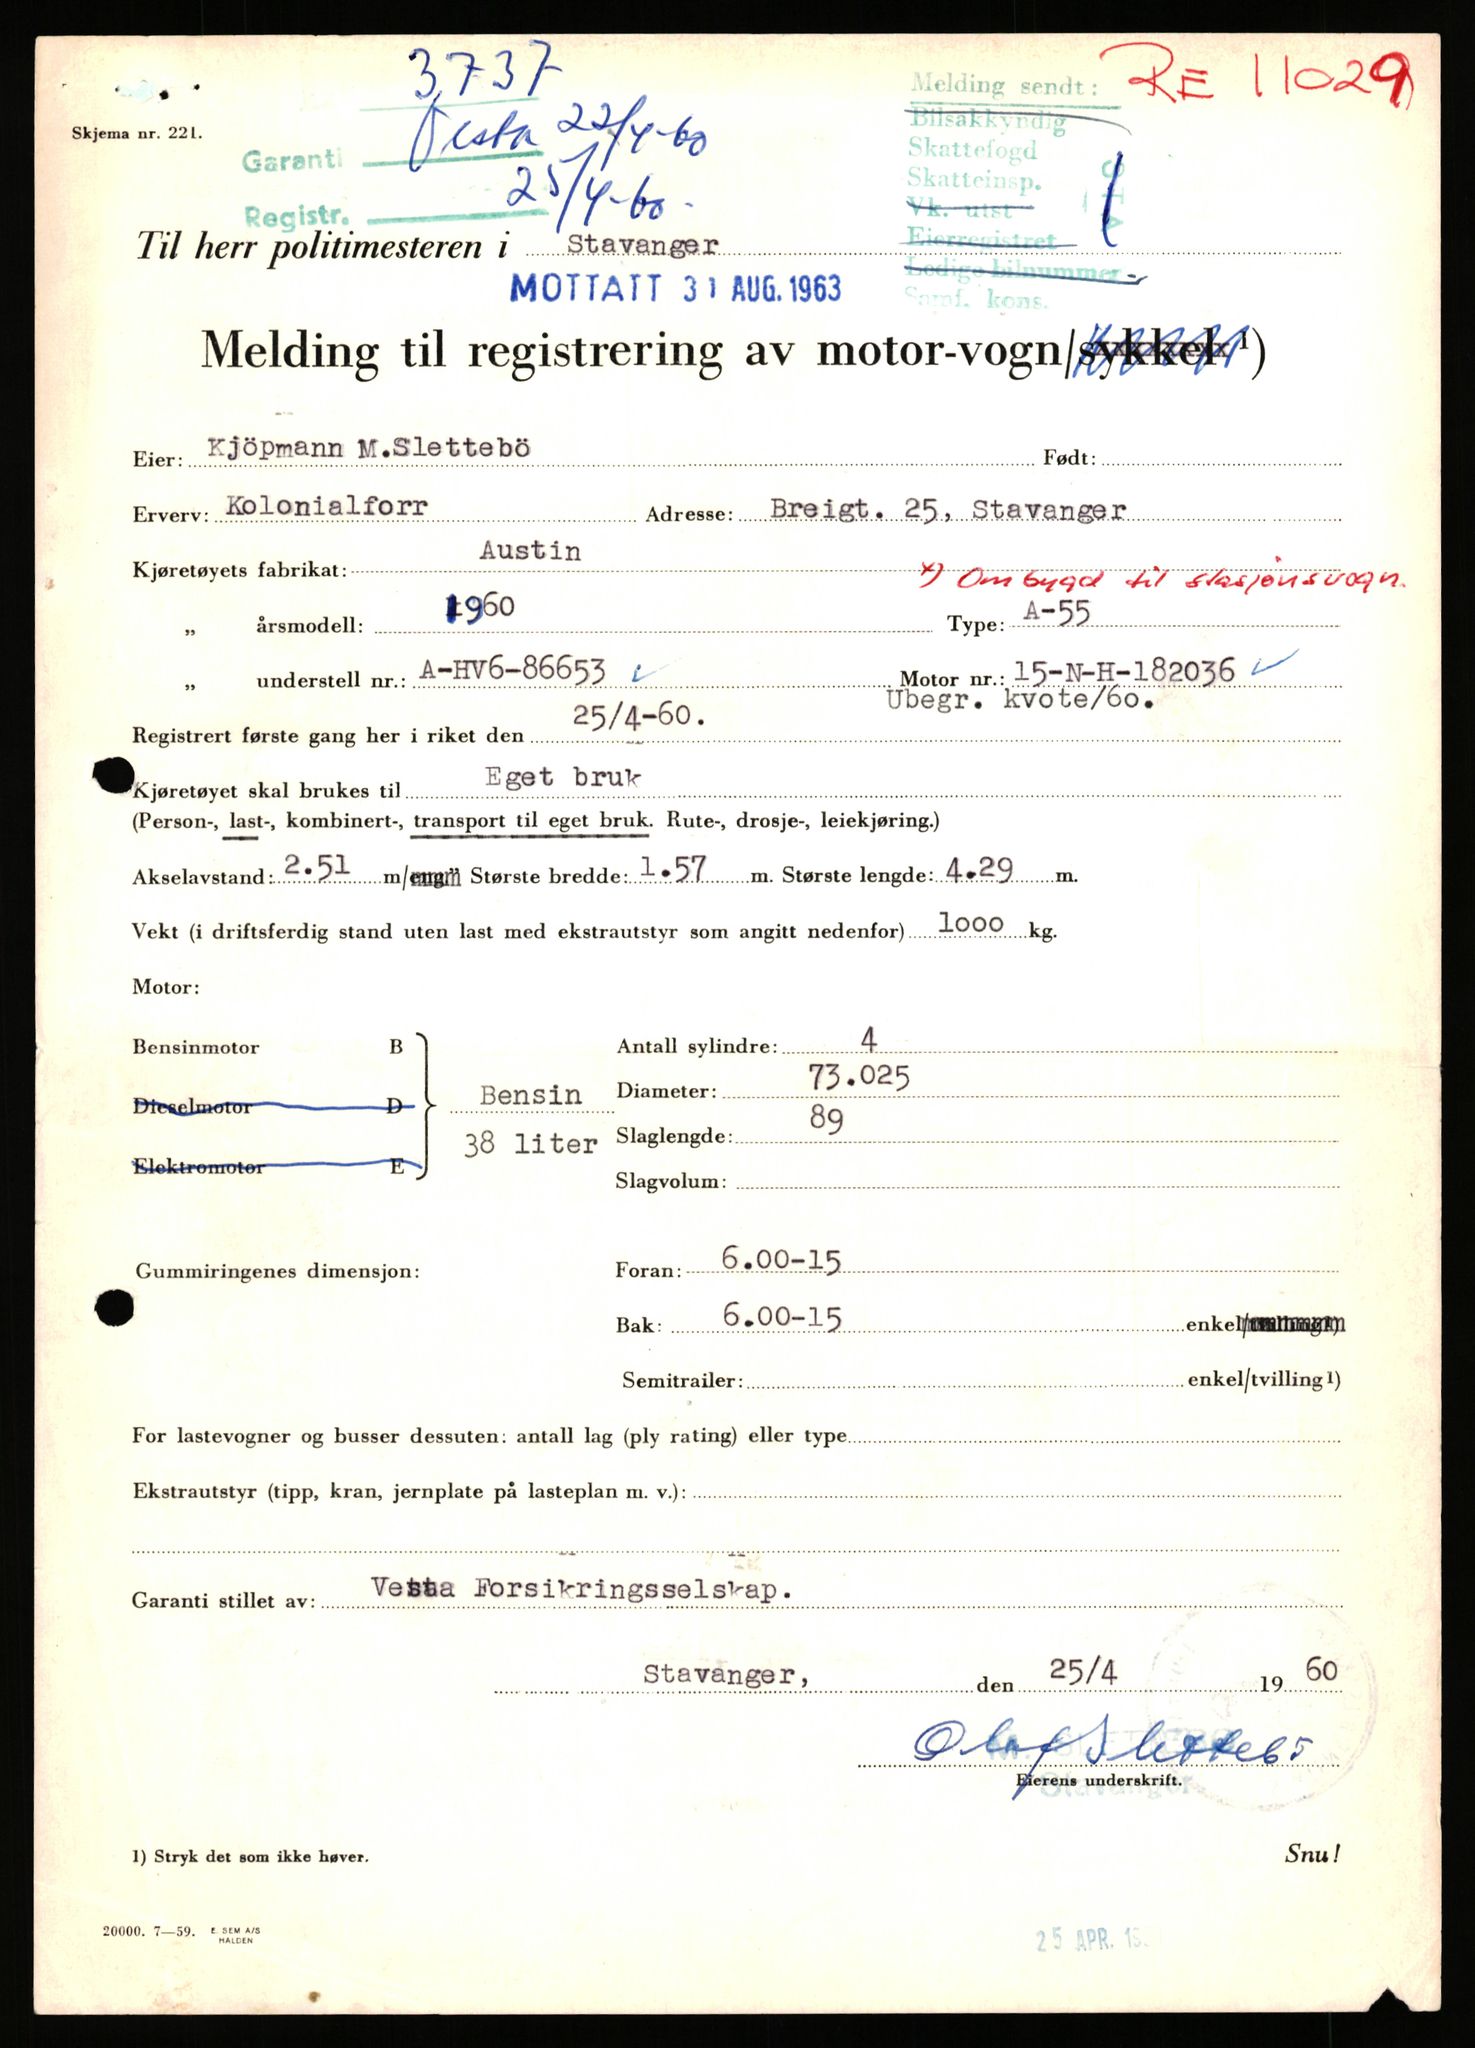 3737
RE 11029
Melding sendt:
Bilsakkyndig
Skattefogd
Skatteinsp.
Vk. utst
Eierregistret
Ledige bilnummer
Samf. kons.
STA
Skjema nr. 221.
Garanti Vesta 22/4-60
Registr. 25/4-60.
Til herr politimesteren i Stavanger
MOTTATT 31 AUG. 1963
Melding til registrering av motor-vogn/sykkel 1)
Eier: Kjöpmann M.Slettebö Født:
Erverv: Kolonialforr Adresse: Breigt. 25, Stavanger
Kjøretøyets fabrikat: Austin
x) Ombygd til stasjonsvogn.
„ årsmodell: 1960 Type: A-55
„ understell nr.: A-HV6-86653 Motor nr.: 15-N-H-182036
Ubegr. kvote/60.
Registrert første gang her i riket den 25/4-60.
Kjøretøyet skal brukes til Eget bruk
(Person-, last-, kombinert-, transport til eget bruk. Rute-, drosje-, leiekjøring.)
Akselavstand: 2.51 m/eng” Største bredde: 1.57 m. Største lengde: 4.29 m.
Vekt (i driftsferdig stand uten last med ekstrautstyr som angitt nedenfor) 1000 kg.
Motor:
Bensinmotor B
Dieselmotor D
Elektromotor E
Bensin
38 liter
Antall sylindre: 4
Diameter: 73.025
Slaglengde: 89
Slagvolum:
Gummiringenes dimensjon: Foran: 6.00-15
Bak: 6.00-15 enkel/tvilling1)
Semitrailer: enkel/tvilling1)
For lastevogner og busser dessuten: antall lag (ply rating) eller type
Ekstrautstyr (tipp, kran, jernplate på lasteplan m. v.):
Garanti stillet av: Vesta Forsikringsselskap.
Stavanger, den 25/4 1960
Olaf Slettebö
Eierens underskrift.
Stavanger
1) Stryk det som ikke høver.
Snu!
20000. 7—59. E. SEM A/S
HALDEN
25 APR. 19